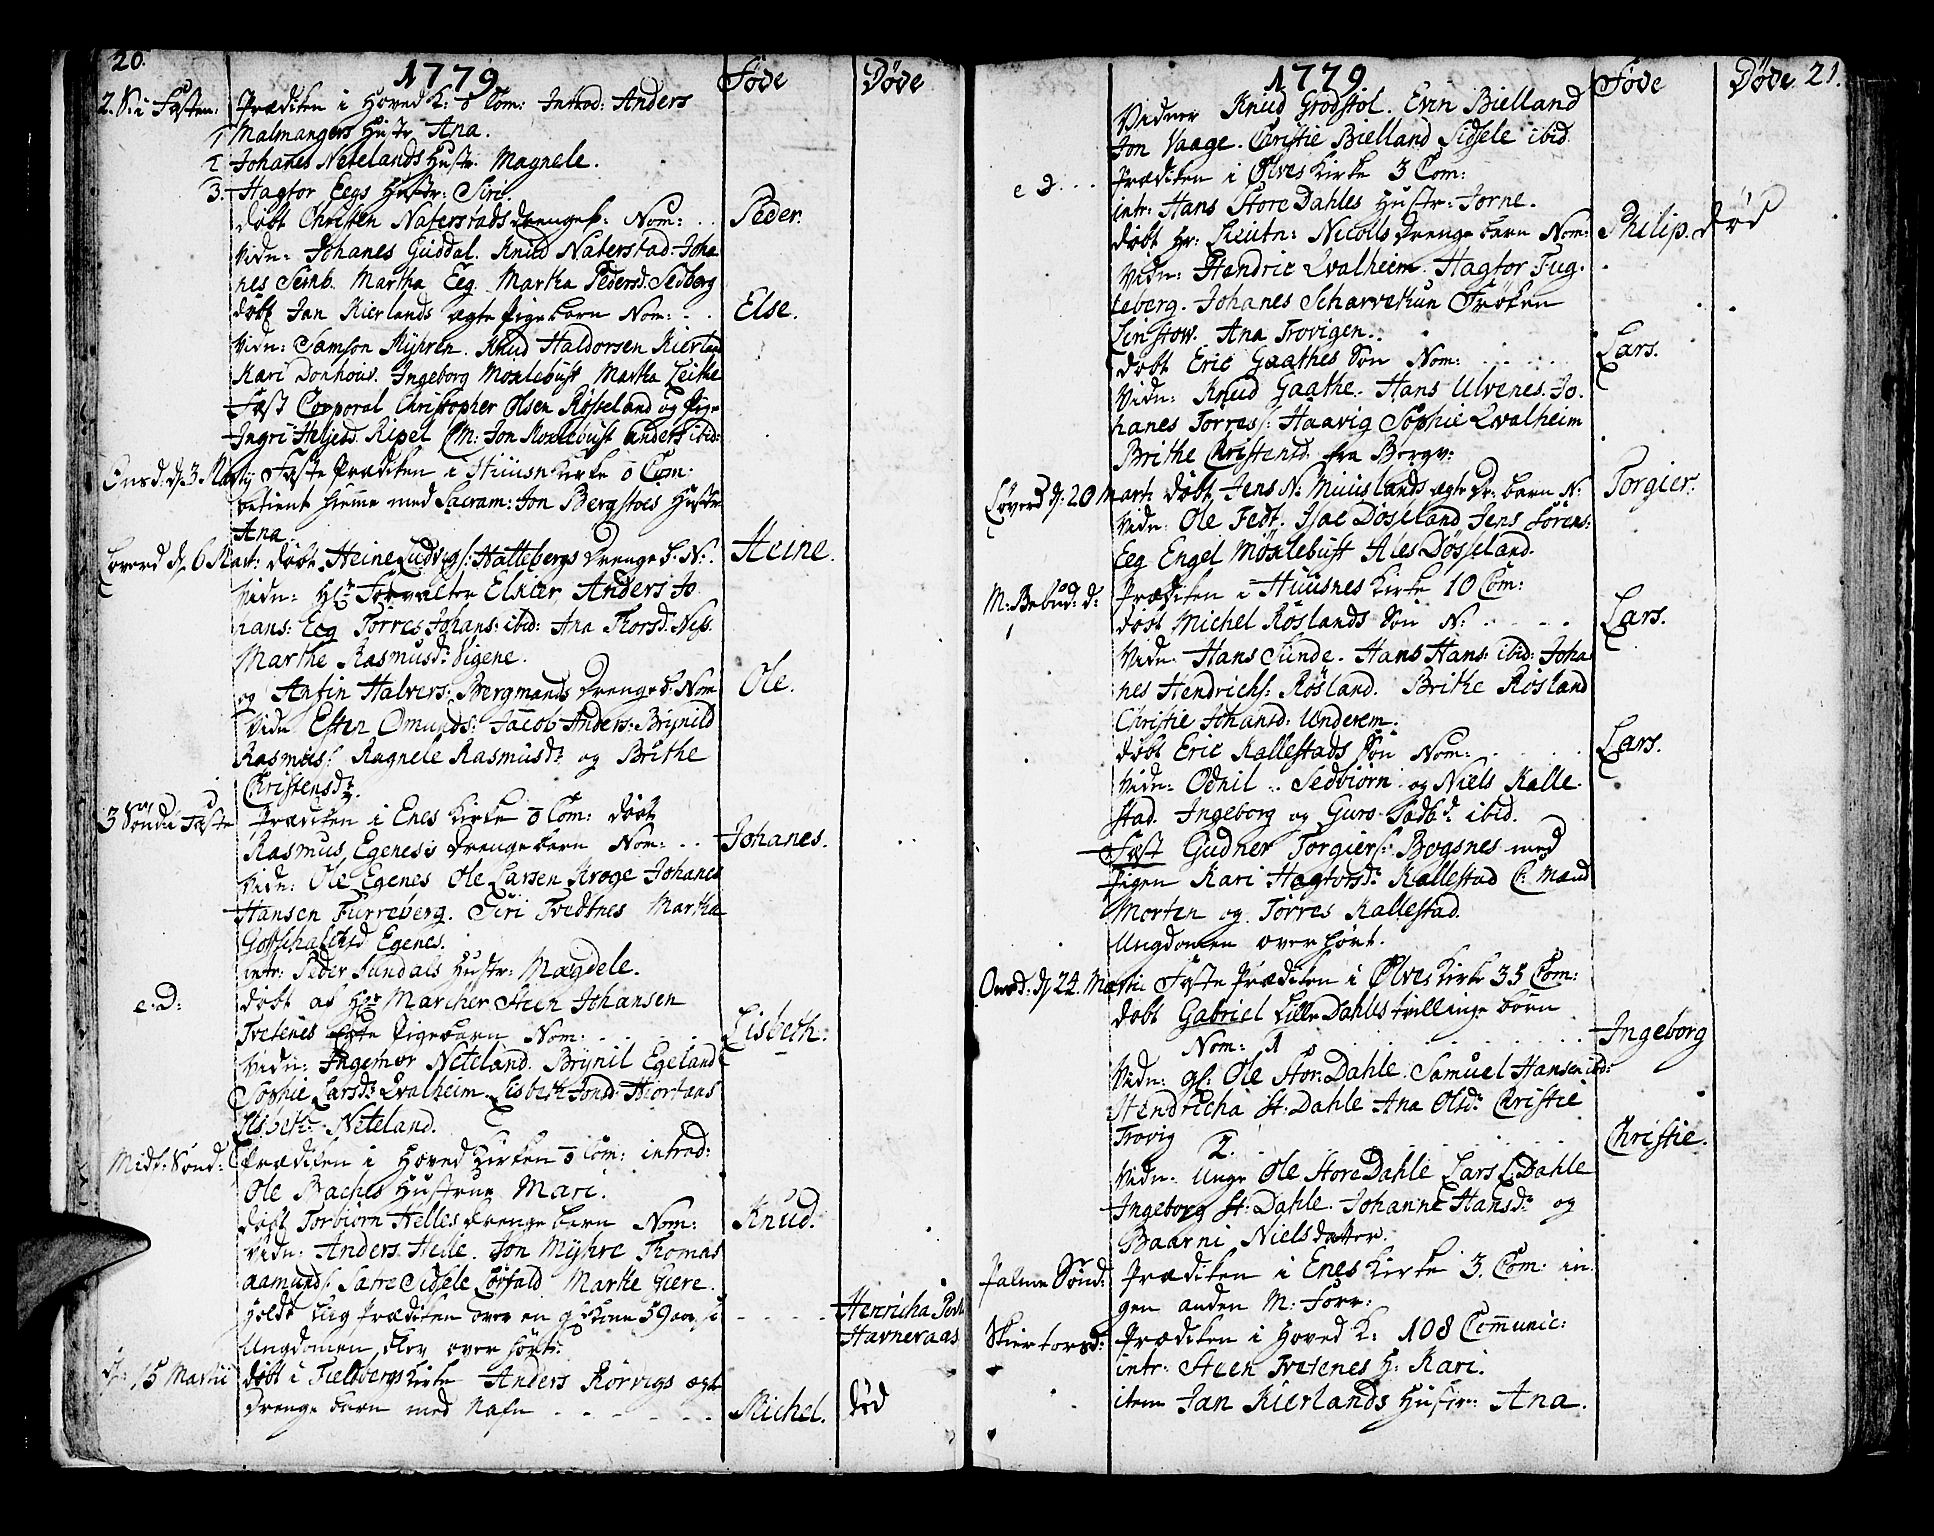 20.
1779
Føde
Døde
2. S. i Fasten.
Prædiken i Hoved K: 0 Com: Introd: Anders
1 Malmangers Hustr Ana.
2 Johanes Netelands Hustr: Magnele.
3. Hagtor Eegs Hustr: Siri.
døbt Christen Naterstads drengeb: Nom: . .
Peder.
Vidn: Johanes Guddal. Knud Naterstad. Joha
nes Seimb. Martha Eeg. Martha Pedersd. Sedberg
døbt Jan Kierlands ægte Pigebarn Nom: . .
Else.
Vidn: Samson Myhren. Knud Haldorsen Kierland
Kari Donhouv. Ingeborg Moxlebust Martha Leithe
Fæst Corporal Christopher Olsen Røsseland og Pige
Ingri Heljesd. Ripel C M: Jon Moxlebust Anders ibid:
Onsd. d. 3 Martij
Faste Prædiken i Huusn Kirke 0 Com:
betient hieme med Sacram: Jon Bergstøes Hustr
Ana.
Løverd d. 6 Mart:
døbt Heine Ludvigs: Hattebergs drengeb: N: .
Heine.
Vidn: Hr Forvalter Elkier Anders Jo
hans: Eeg Torres Johans: ibid: Ana Thorsd. Ness.
Marthe Rasmusd: Sigene.
og Anfin Halvers: Bergmands drengeb. Nom
Ole.
Vidn Esten Omunds: Jacob Anders: Brynild
Rasmus: Ragnele Rasmusd: og Brithe
Christensd:
3 Sønd i Faste
Prædiken i Enes Kirke 0 Com: døbt
Rasmus Egeneses drengebarn Nom: . .
Johanes.
Vidn: Ole Egenes Ole Larsen Kroge Johanes
Hansen Furreberg. Siri Tvedtnes Martha
Gottschalchsd Egenes.
intr: Peder Sundals Hustr: Magdele.
e. D:
døbt af Hr Marcher Steen Johansen
Tvetenes ægte Pigebarn Nom: . . .
Lisbeth:
Vidn: Ingemor Neteland. Brynil Egeland
Sophie Larsd: Qvalheim. Lisbeth Jonsd: Hiortaas
Elsbeth: Neteland.
Midf: Sønd:
Prædiken i Hoved Kirken 0 Com: introd:
Ole Baches Hustrue Mari.
døbt Torbiørn Helles drengebarn Nom:
Knud.
Vidn: Anders Helle. Jon Myhre Thomas
Aamunds: Sætre Sidsele Lørfald Marthe Giere.
Holdt Liig Prædiken over en g: Kone 59 aar,
Henricha Pedd
Ungdomen blev overhørt.
Havneraas
d. 15 Martij
døbt i Fieldbergs Kirke Anders Rørvigs ægte
drengebarn med Nafn . . . . . .
Michel.
død
1779
Føde
Døde 21.
Vidner Knud Grodstøl. Evin Bielland
Jon Vaage. Christie Bielland Sidsele ibid.
e D . . .
Prædiken i Ølves Kirke 3 Com:
intr: Hans Store Dahles Hustr: Jorne.
døbt Hr: Lieutn: Nicolls drengebarn Nom:
Philip. død
Vidn: Hendric Qvalheim. Hagtor Fug-
leberg. Johanes Scharvekun Frøken
Linstow. Ana Trovigen.
døbt Eric Gaathes Søn Nom: . . . .
Lars.
Vidn: Knud Gaathe. Hans Ulvenes. Jo
hanes Torres: Haavig Sophie Qvalheim
Brithe Christensd. fra Bergv:
Løverd d: 20 Marti
døbt Jens N: Muuslands ægte dr: barn N:
Torgier.
Vidn: Ole Fedt. Isac Døsseland Jens Sørens:
Eeg Engel Moxlebust Ales Døsseland.
M: Bebud: d:
Prædiken i Huusnes Kirke 10 Com:
døbt Michel Røslands Søn N: . . . .
Lars.
Vidn: Hans Sunde. Hans Hans: ibid: Joha
nes Hendrichs: Røsland. Brithe Røsland
Christie Johansd: Underem.
døbt Eric Kallestads Søn Nom: . . . .
Lars.
Vidn: Odnil . Sedbiørn og Niels Kalle
stad. Ingeborg og Guro Sadbd: ibid.
Fæst Gudner Torgiers: Bogsnes med
Pigen Kari Hagtorsd: Kallestad C: Mænd
Morten og Torres Kallestad.
Ungdomen overhørt.
Onsd. d 24. Martii
Faste Prædiken i Ølves Kirke 35 Com:
døbt Gabriel Lille Dahles tvillinge børn
Nom: 1 . . . . . . .
Ingeborg
Vidn: gl: Ole Stor: Dahle. Samuel Hansen ibd:
Hendricha St: Dahle Ana Olsd: Christie
Trovig 2. . . . . .
Christie.
Vidn: Unge Ole Store Dahle Lars L: Dahle
Ingeborg St: Dahle. Johanne Hansd: og
Baarni Nielsdatter.
Palme Sønd:
Prædiken i Enes Kirke 3. Com: in
gen anden M: Forr:
Skiertorsd:
Prædiken i Hoved K: 108 Comunic:
intr: Steen Tvetenes H: Kari.
item Jan Kierlands Hustr: Ana.